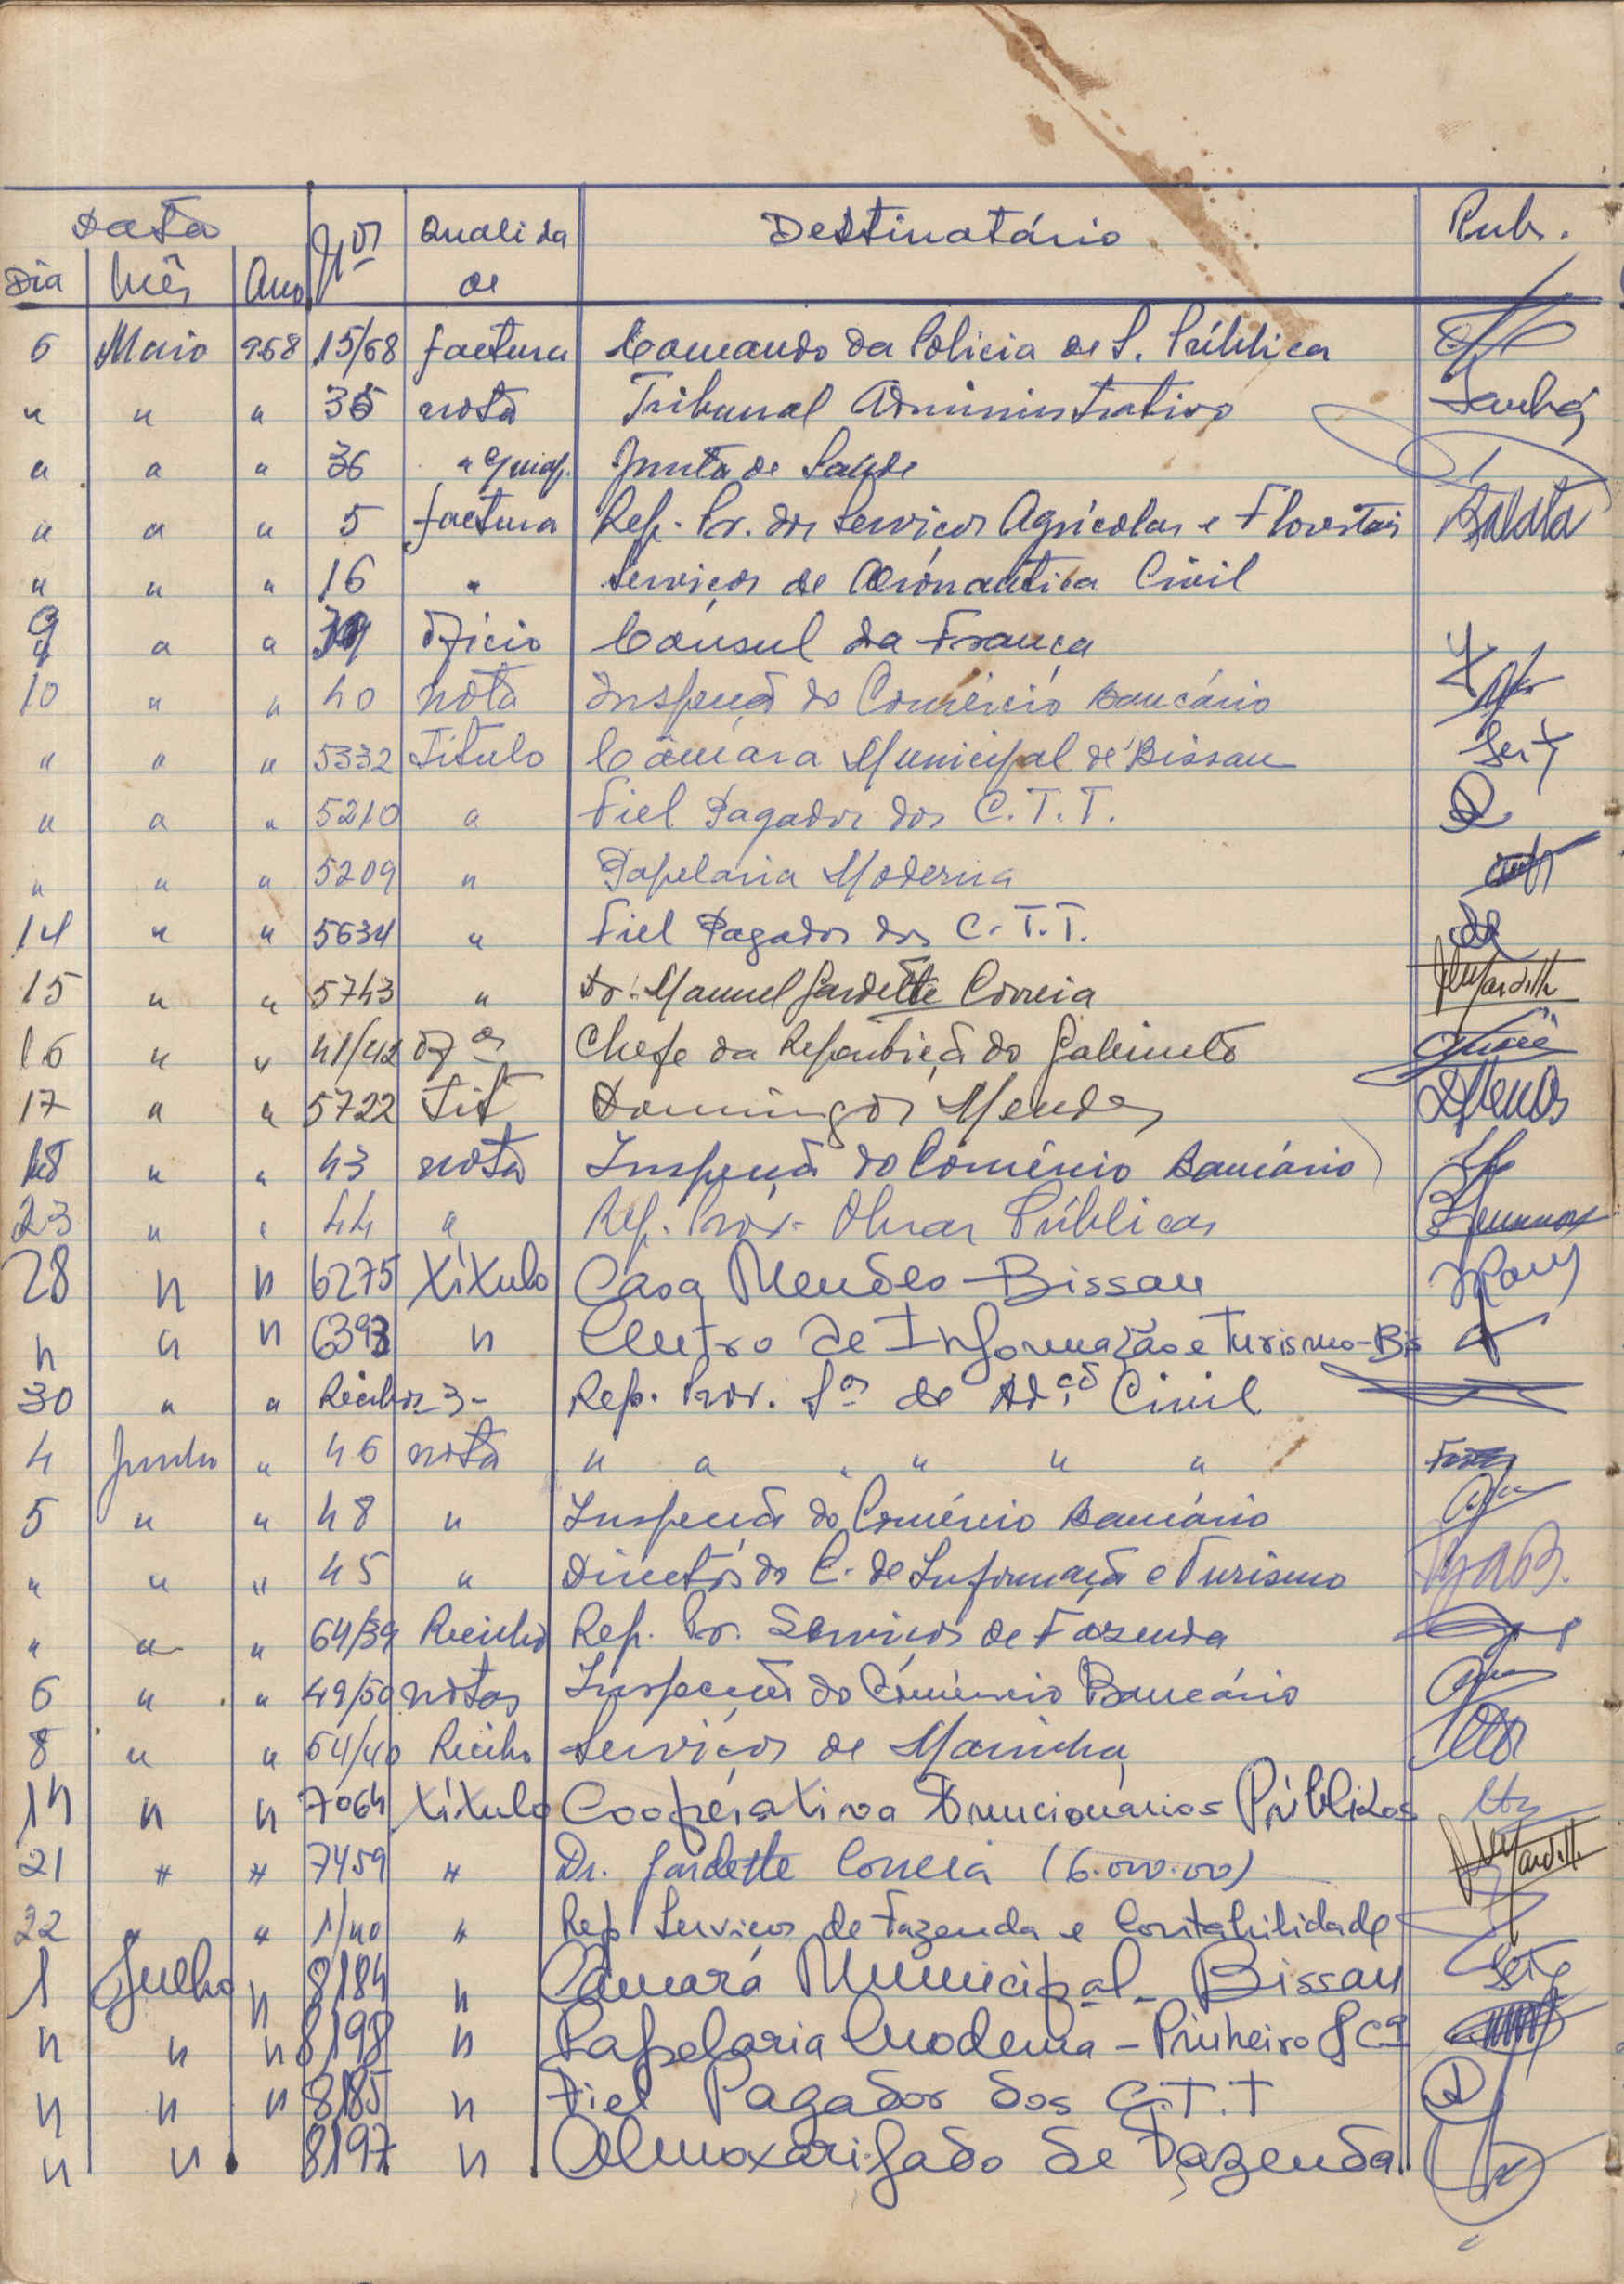 Data Nos Qualida Destinatário Rubr.
Dia Mês Ano de
6 Maio 968 15/68 factura Comando da Policia de S. Pública
" " " 35 nota Tribunal Administrativo Sanhá
" " " 36 " Junta de Saude
" " " 5 factura Rep. Pr. dos Serviços Agrícolas e Florestais Balata
" " " 16 " Serviços de Aeronautica Civil
9 " " 39 Oficio Cônsul da França
10 " " 40 nota Inspeçã do Comércio Bancário
" " " 5332 Titulo Câmara Municipal de Bissau
" " " 5210 " Fiel Pagador dos C.T.T.
" " " 5209 " Papelaria Moderna
14 " " 5634 " Fiel Pagador dos C.T.T.
15 " " 5743 " Dr. Manuel Gardette Correia
16 " " 41/42 Of.os Chefe da Repartiçã do Gabineto
17 " " 5722 Tit Domingos Mendes DMendes
18 " " 43 nota Inspeçã do Comércio Bancário
23 " " 44 " Rep. Prov. Obras Públicas
28 " " 6275 Título Casa Mendes - Bissau
" " " 6393 " Centro de Informação e Turismo - Bis
30 " " Recibos 3 - Rep. Prov. Sos de Ad.çã Civil
4 Junho " 46 nota " " " " " "
5 " " 48 " Inspeçã do Comércio Bancário
" " " 45 " Directôr do C. de Informaçã e Turismo
" " " 64/39 Recibo Rep. Pr. Serviços de Fazenda
6 " " 49/50 notas Inspecçã do Comércio Bancário
8 " " 64/40 Recibo Serviços de Marinha
14 " " 7064 Título Cooperativa Funcionários Públicos
21 " " 7459 " Dr. Gardette Correia (6.000.00)
22 " " 1/40 " Rep Serviços de Fazenda e Contabilidade
1 Julho " 8184 " Câmara Municipal - Bissau
" " " 8198 " Papelaria Moderna - Pinheiro & Cª
" " " 8185 " Fiel Pagador dos C.T.T
" " " 8197 " Almoxarifado de Fazenda